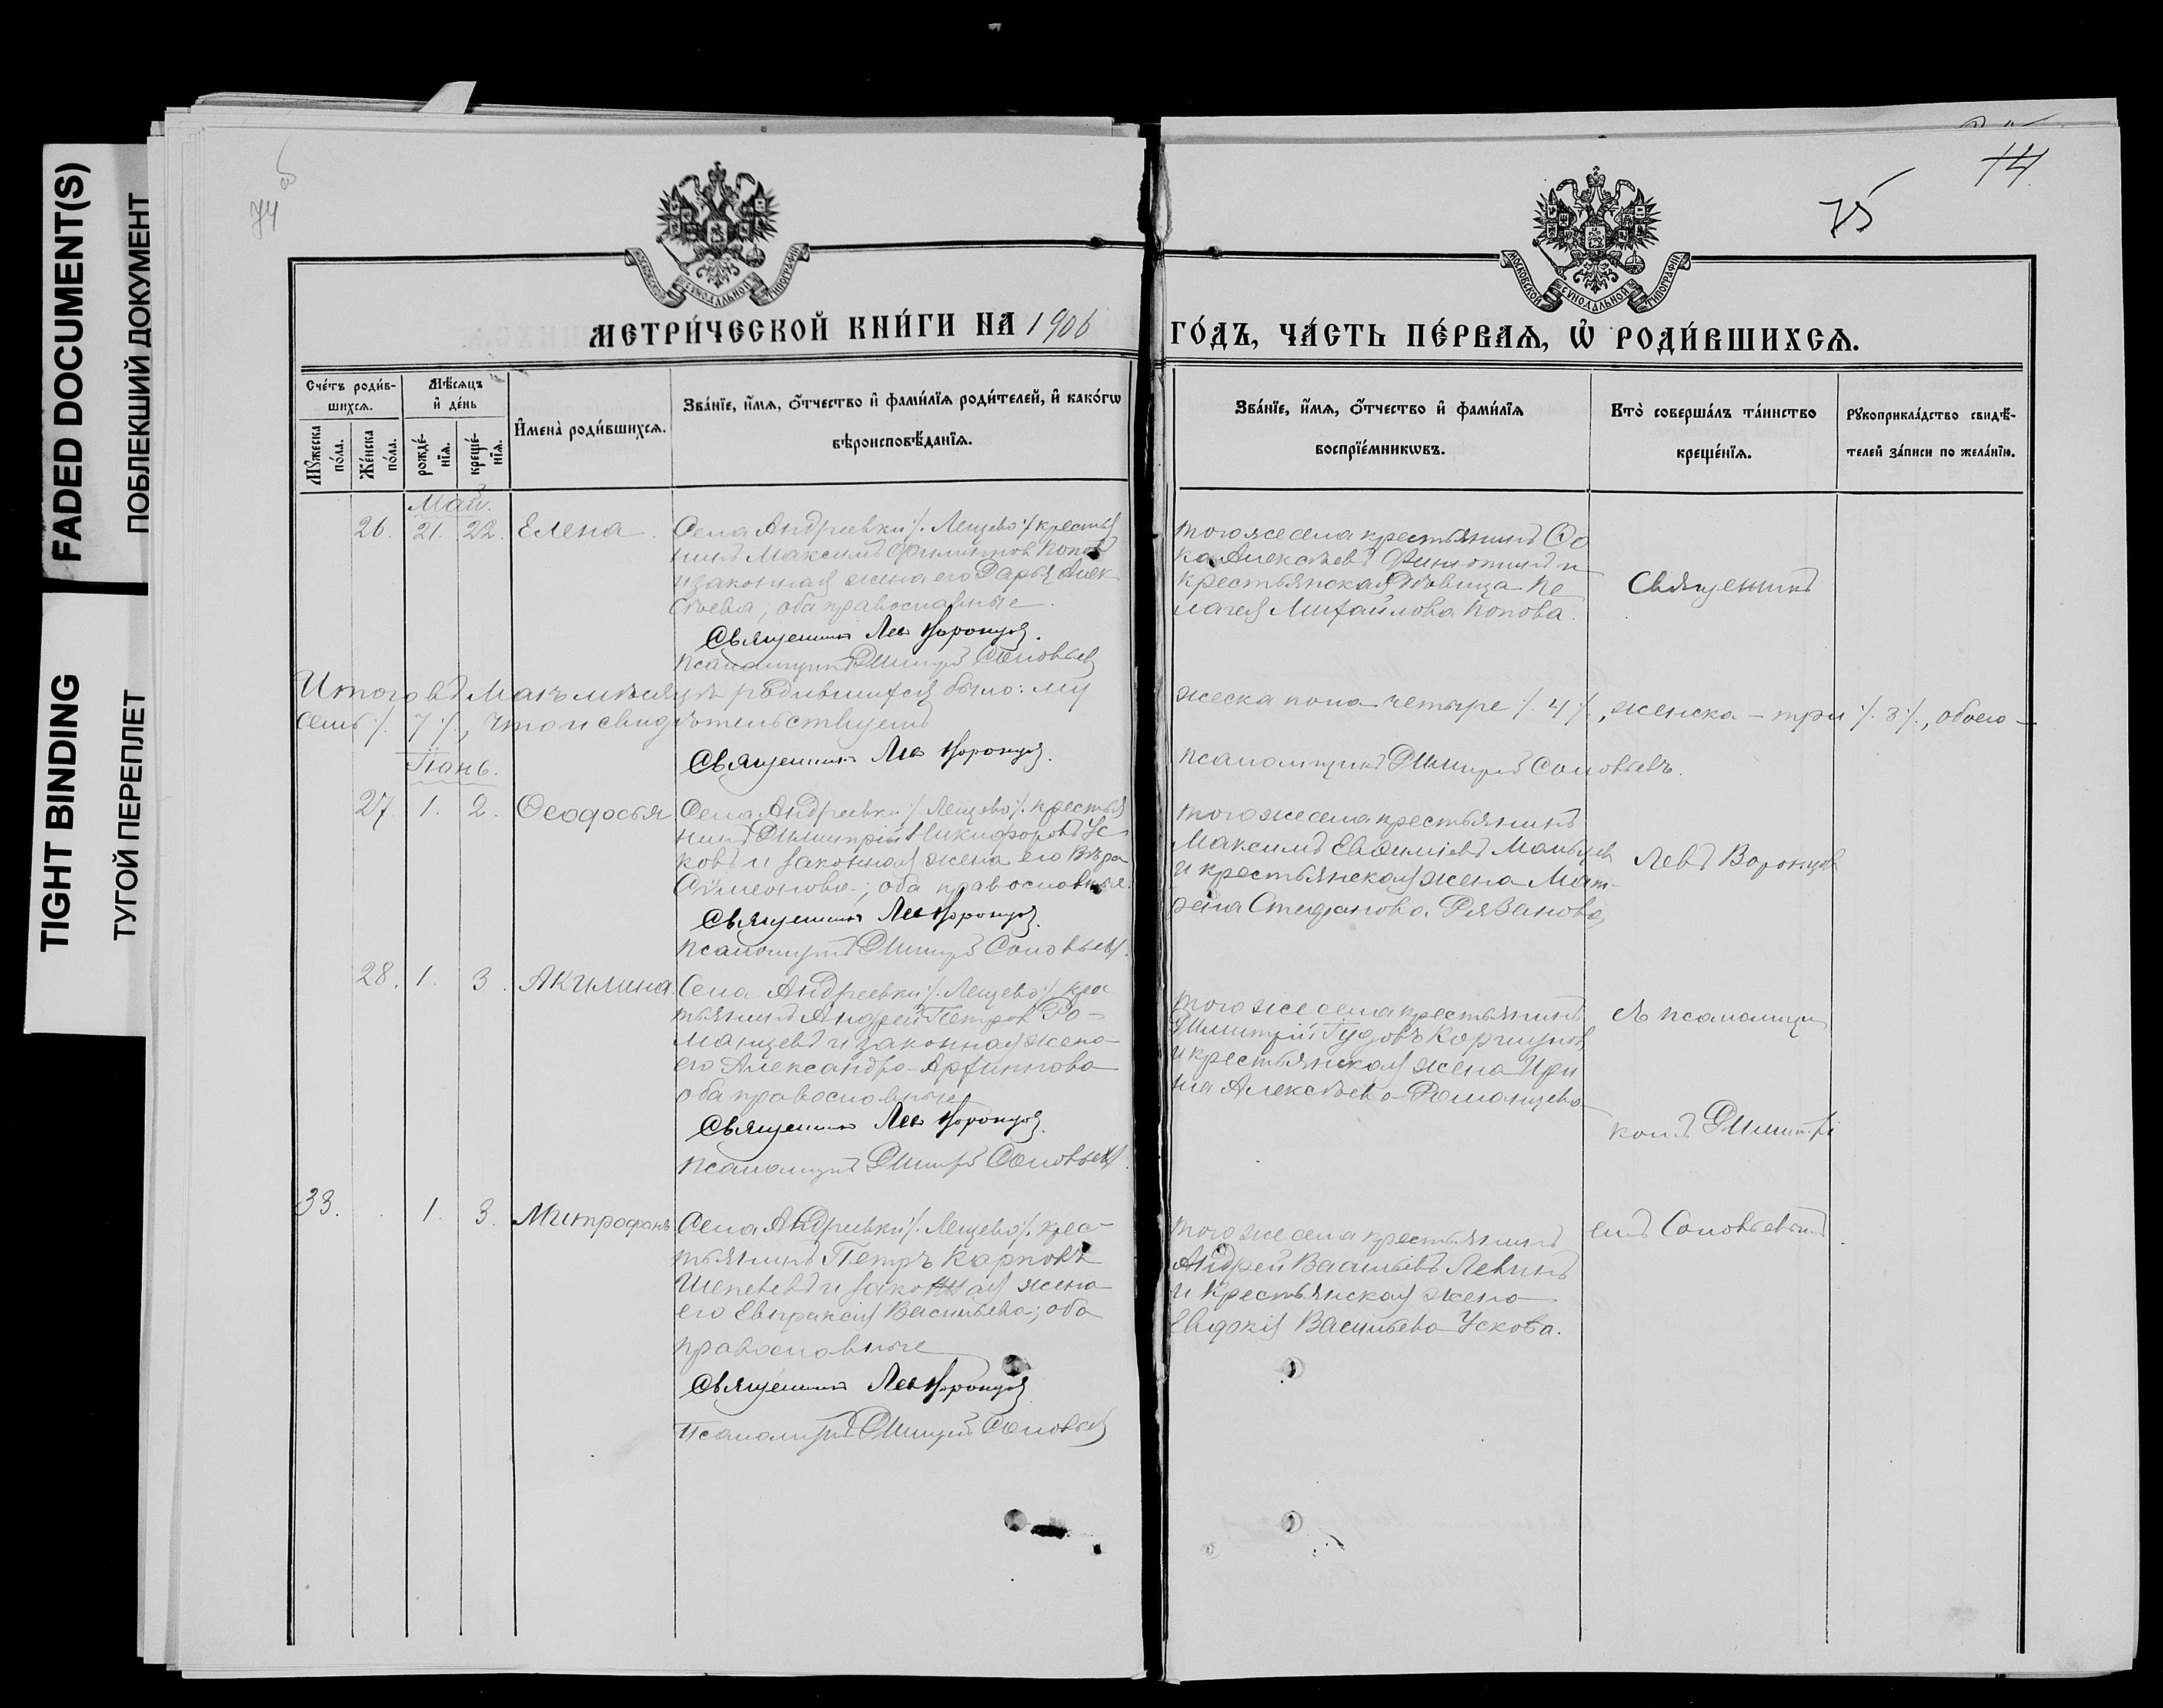 FADED DOCUMENT(S)
ПОБЛЕКШИЙ ДОКУМЕНТ
TIGHT BINDING
ТУГОЙ ПЕРЕПЛЕТ
74 об
75
74
МОСКОВСКОЙ СѴНОДАЛЬНОЙ ТИПОГРАФІИ
МОСКОВСКОЙ СѴНОДАЛЬНОЙ ТИПОГРАФІИ
МЕТРИ́ЧЕСКОЙ КНИ́ГИ НА 1906
ГО́ДЪ, ЧА́СТЬ ПЕ́РВАѦ, Ѡ РОДИ́ВШИХСѦ.
Сче́тъ роди́в-
шихсѧ.
Мѣ́сѧцъ
и҆ де́нь
Мꙋ́жеска
по́ла.
Же́нска
по́ла.
рожде́-
нїѧ.
креще́-
нїѧ.
И҆мена̀ роди́вшихсѧ.
Зва́нїе, и҆́мѧ, ѻ҆́тчество и҆ фами́лїѧ роди́телей, и҆ како́гѡ
вѣроисповѣ́данїѧ.
Зва́нїе, и҆́мѧ, ѻ҆́тчество и҆ фами́лїѧ
воспрїе́мникѡвъ.
Кто̀ соверша́лъ та́инство
креще́нїѧ.
Рꙋкоприкла́дство свидѣ́-
телей за́писи по жела́нїю.
Май.
26. 21. 22. Елена.
Села Андреевки /. Лещево ./ крестья
нинъ Максимъ Филиппов Попов
и законная жена его Дарья Алек
сѣева, оба православные.
Священникъ Лев Воронцов.
Псаломщикъ Димитрій Соловьев
того же села крестьянинъ Фо
ка Алексѣевъ и
крестьянская дѣвица Пе
лагея Михайлова Попова.
Священникъ
Итого въ Маѣ мѣсяцѣ родившихся было: му
жеска пола четыре /. 4 ./, женска – три /. 3 ./, обоего –
семь /. 7 ./, что и свидѣтельствуемъ
Священникъ Лев Воронцов.
Псаломщикъ Димитрій Соловьевъ.
Іюнь.
27. 1. 2. Ѳеодосья
Села Андреевки /. Лещево ./. крестья
нинъ Димитрій Никифоровъ Ус
ковъ и законная жена его Вѣра
Сѵмеонова; оба православные.
Священникъ Лев Воронцов.
Псаломщикъ Димитрій Соловьев.
того же села крестьянинъ
Максимъ Евѳиміевъ Мальцев
и крестьянская жена Мат-
рена Стефанова Рязанова,
Левъ Воронцов
28. 1. 3. Акилина.
Села Андреевки /. Лещево ./ крес
тьянинъ Андрей Петров Ро-
манцевъ и законная жена
его Александра Архиппова
оба православные
Священникъ Лев Воронцов.
Псаломщикъ Димитрій Соловьев.
того же села крестьянинъ
Димитрій Гудовъ Коршунов
и крестьянская жена Ири
на Алексѣева Романцева
съ псаломщи
комъ Димитрі
33. 1. 3. Митрофанъ
Села Андреевки /. Лещево ./. крес-
тьянинъ Петръ Карповъ
Шепелевъ и законная жена
его Евпраксія Васильева; оба
православные
Священникъ Лев Воронцов
Псаломщикъ Димитрій Соловьев
того же села крестьянинъ
Андрей Васильевъ Левинъ
и крестьянская жена
Евдокія Васильева Ускова.
емъ Соловьевымъ.